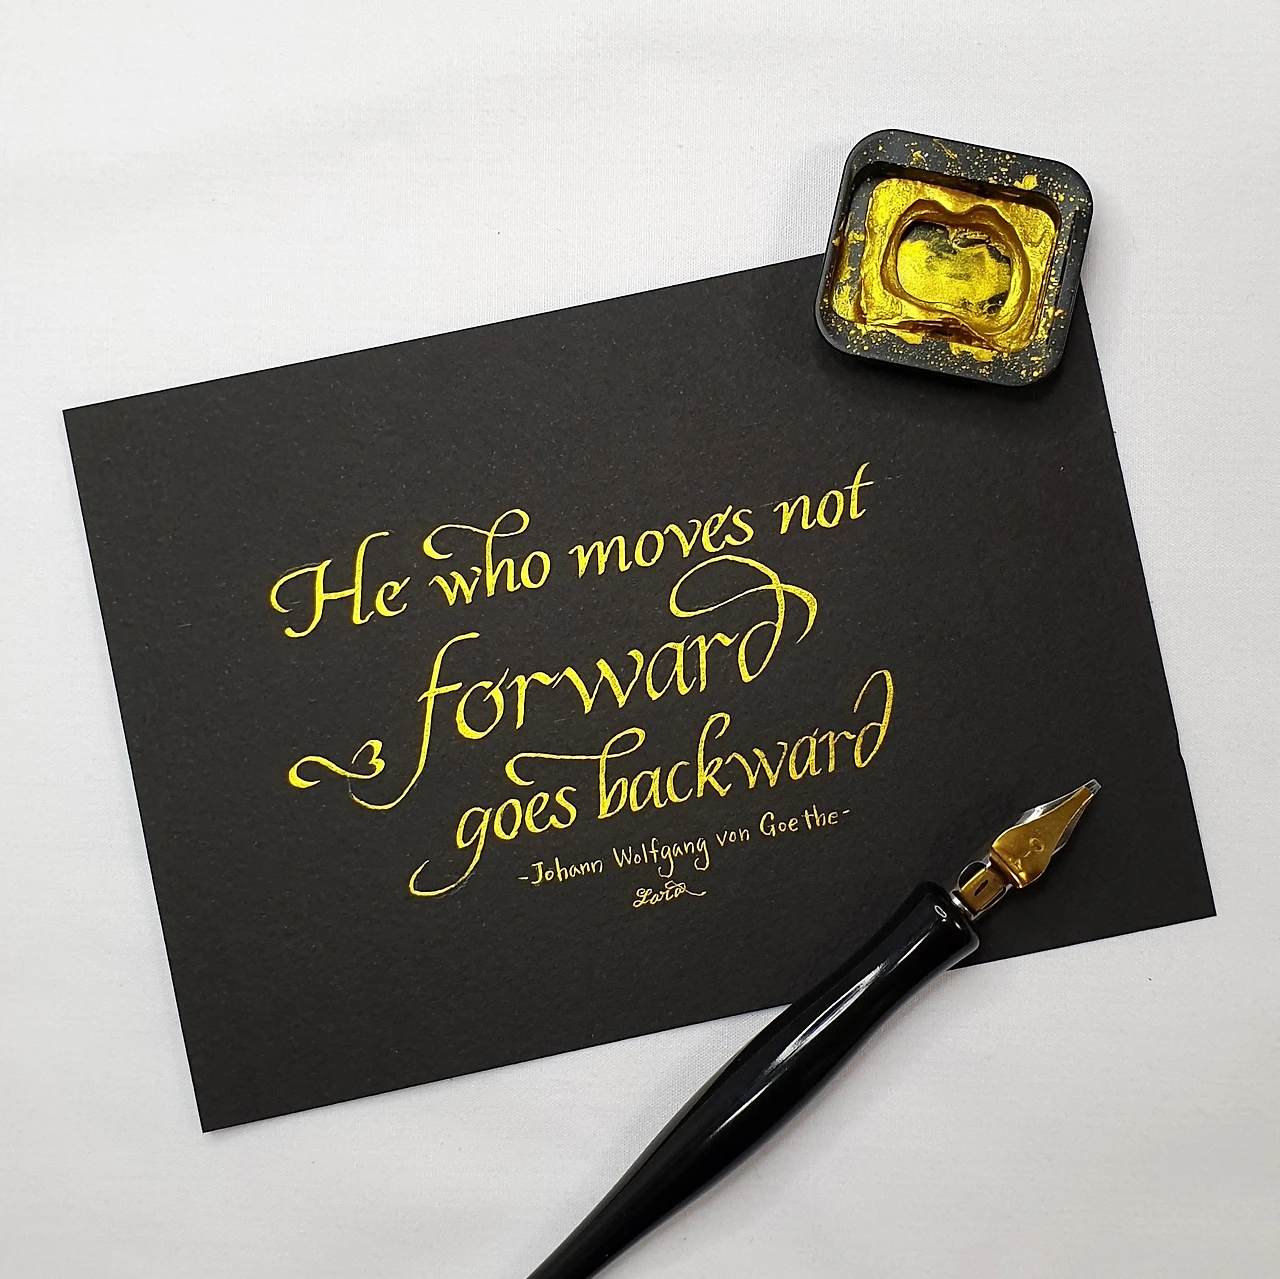 He who moves not
forward
goes backward
-Johann Wolfgang von Goethe-
Lara